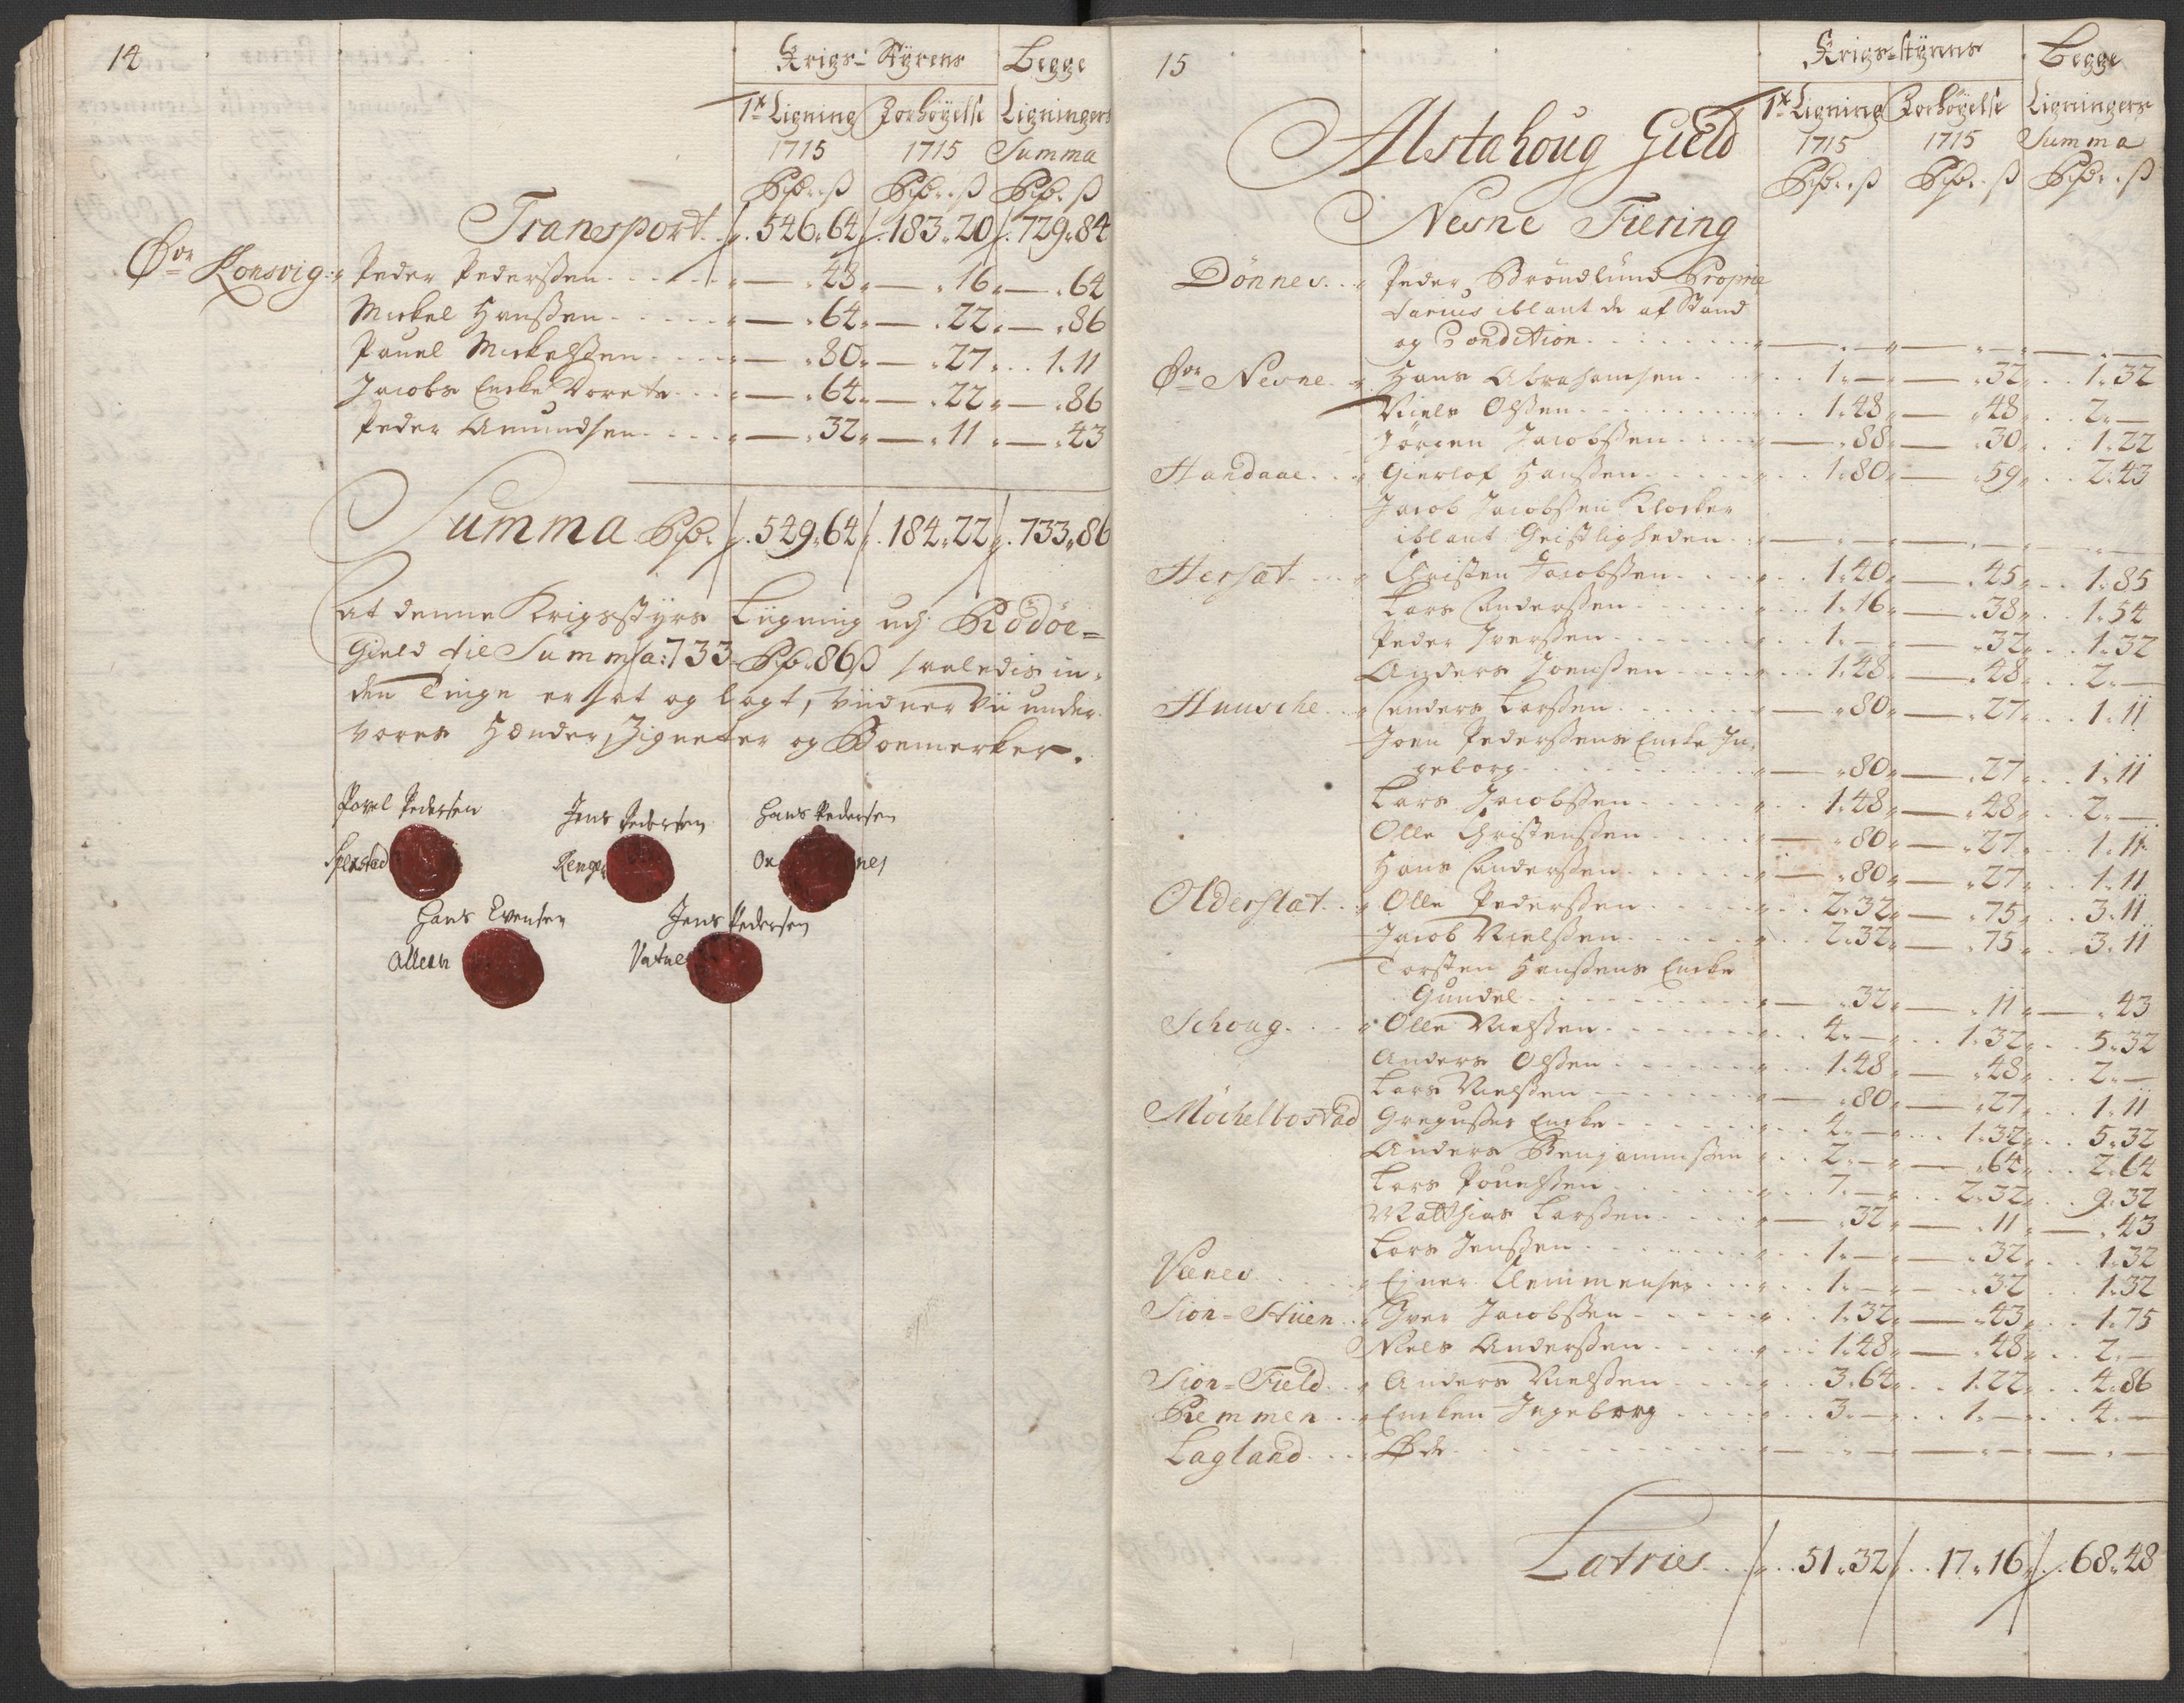 14
Krigs-Styrens Begge
1te Ligning Forhöyelse Ligningers
1715 1715 Summa
Rdr. ß Rdr. ß Rdr. ß
Transport 546. 64 183. 20 729. 84
Øvr Konsvig. Peder Pederssen — 48 — 16 — 64
Mickel Hanssen — 64 — 22 — 86
Pauel Mickelssen — 80 — 27 1. 11
Jacobs Encke Dorete — 64 — 22 — 86
Peder Amundsen — 32 — 11 — 43
Summa Rdr. 549. 64 184. 22 733. 86
At denne Krigsstyrs Liigning udj Rödöe-
Gield til Summa: 733 Rdr. 86 ß saaledis in-
den Tinge er sat og lagt, viidner vii under
vores Hænder, Zigneter og Boemerker.
Povel Pedersen Jens Pedersen Hans Pedersen
Selnstad
Hans Evensen Jens Pedersen
15
Krigs-styrens Begge
1te Ligning Forhöyelse Ligningers
1715 1715 Summa
Rdr. ß Rdr. ß Rdr. ß
Alstahoug Gield
Nesne Fiering
Dönnes Peder Bröndlund Proprie
tarius iblant de af Stand
og Condition — — —
Øvr Nesne Hans Abrahamsen 1. — — 32 1. 32
Niels Olssen 1. 48 — 48 2. —
Jörgen Jacobssen — 88 — 30 1. 22
Handaae Gierlof Hanssen 1. 80 — 59 2. 43
Jacob Jacobssen Klocker
iblant Geistligheden — — —
Hersat Christen Jacobssen 1. 40 — 45 1. 85
Lars Anderssen 1. 16 — 38 1. 54
Peder Iverssen 1. — — 32 1. 32
Anders Joenssen 1. 48 — 48 2. —
Huusche Anders Larssen — 80 — 27 1. 11
Joen Pederssens Encke In-
geborg — 80 — 27 1. 11
Lars Jacobssen 1. 48 — 48 2. —
Olle Christenssen — 80 — 27 1. 11
Hans Anderssen — 80 — 27 1. 11
Olderslat Olle Pederssen 2. 32 — 75 3. 11
Jacob Nielssen 2. 32 — 75 3. 11
Torsten Hanssens Encke
Gundel — 32 — 11 — 43
Schoug Olle Nielssen 4. — 1. 32 5. 32
Anders Olssen 1. 48 — 48 2. —
Lars Nielssen — 80 — 27 1. 11
Möchelbostad Gregusses Encke 4. — 1. 32 5. 32
Anders Benjaminssen 2. — — 64 2. 64
Lars Pouelssen 7. — 2. 32 9. 32
Matthias Larssen — 32 — 11 — 43
Lars Jenssen 1. — — 32 1. 32
Vænes Ejner Clemmensen 1. — — 32 1. 32
Sion-Hüen Iver Jacobssen 1. 32 — 43 1. 75
Niels Anderssen 1. 48 — 48 2. —
Sion-Field Anders Nielssen 3. 64 1. 22 4. 86
Remmen Encken Ingeborg 3. — 1. — 4. —
Lagland Øde — — —
Latries 51. 32 17. 16 68. 48